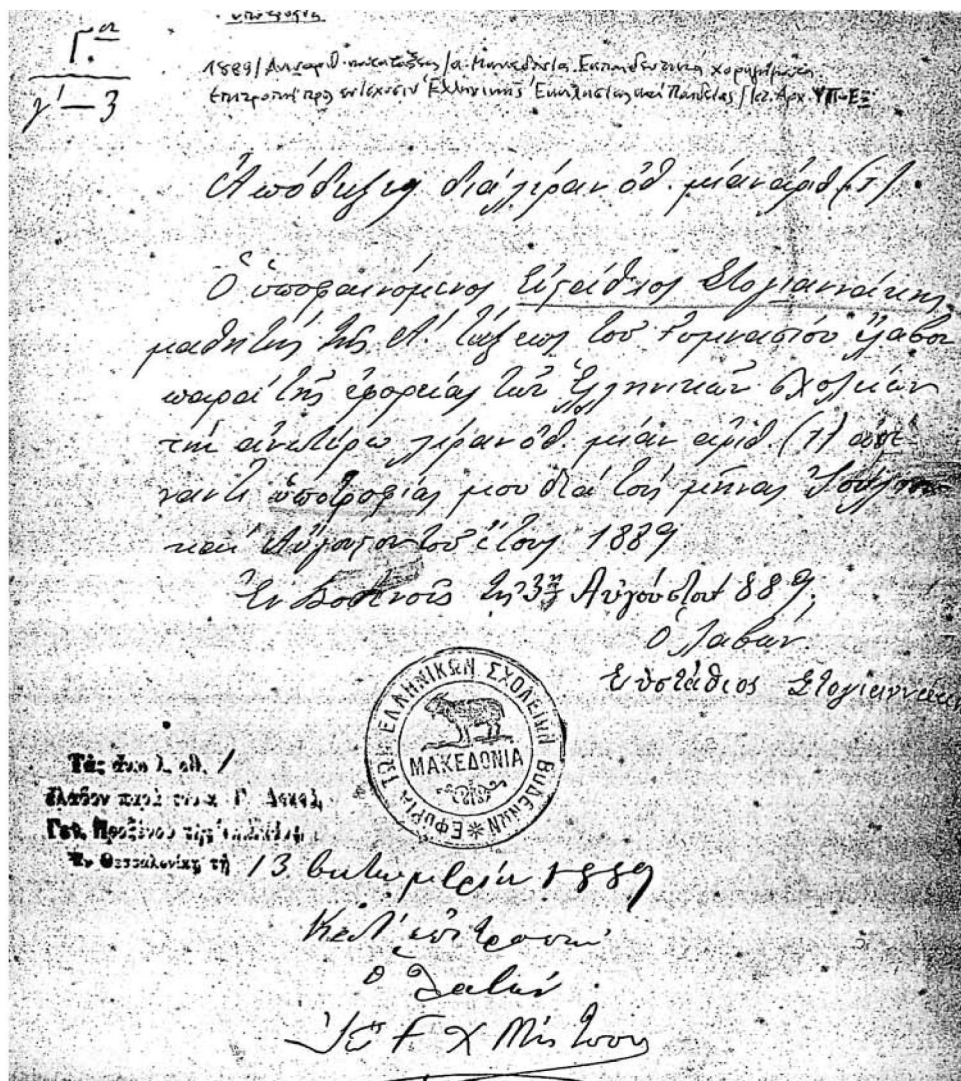 ὑποτροφία
Γ.α
γ'–3
1889/Αναριθ. κατατάξεις/α. Μακεδονία. Εκπαιδευτικά χορηγήματα
Επιτροπή προς ενίσχυσιν Ἑλληνικῆς Ἐκκλησίας καί Παιδείας/ Αρχ. ΥΠ-ΕΞ
Ἀπόδειξις διά λίραν ὀθ. μίαν ἀριθ. (1)
Ὁ ὑποφαινόμενος Εὐστάθιος Στογιαννάκης
μαθητής τῆς Α΄. τάξεως τοῦ Γυμνασίου ἔλαβον
παρά τῆς ἐφορείας τῶν Ἑλληνικῶν σχολείων
τήν ἀνωτέρω λίραν ὀθ. μίαν ἀριθ. (1) ἀπέ-
ναντι ὑποτροφίας μου διά τούς μῆνας Ἰούλιον
καί Αὔγουστον τοῦ ἔτους 1889
Ἐν Βοδενοῖς τῇ 3ῃ Αὐγούστου 889.
Ὁ λαβών
Εὐστάθιος Στογιαννάκης
ΕΦΟΡΙΑ ΤΩΝ ΕΛΛΗΝΙΚΩΝ ΣΧΟΛΕΙΩΝ ΒΟΔΕΝΩΝ
ΜΑΚΕΔΟΝΙΑ
Τάς ἄνω λ. ὀθ. 1
ἔλαβον παρά τοῦ κ. Γ. Δοκοῦ,
Γεν. Προξένου τῆς Ἑλλάδος
Ἐν Θεσσαλονίκῃ τῇ 13 Ὀκτωμβρίου 1889
Κατ' ἐπιτροπήν
ὁ Λαβών
Χ Μήτσου